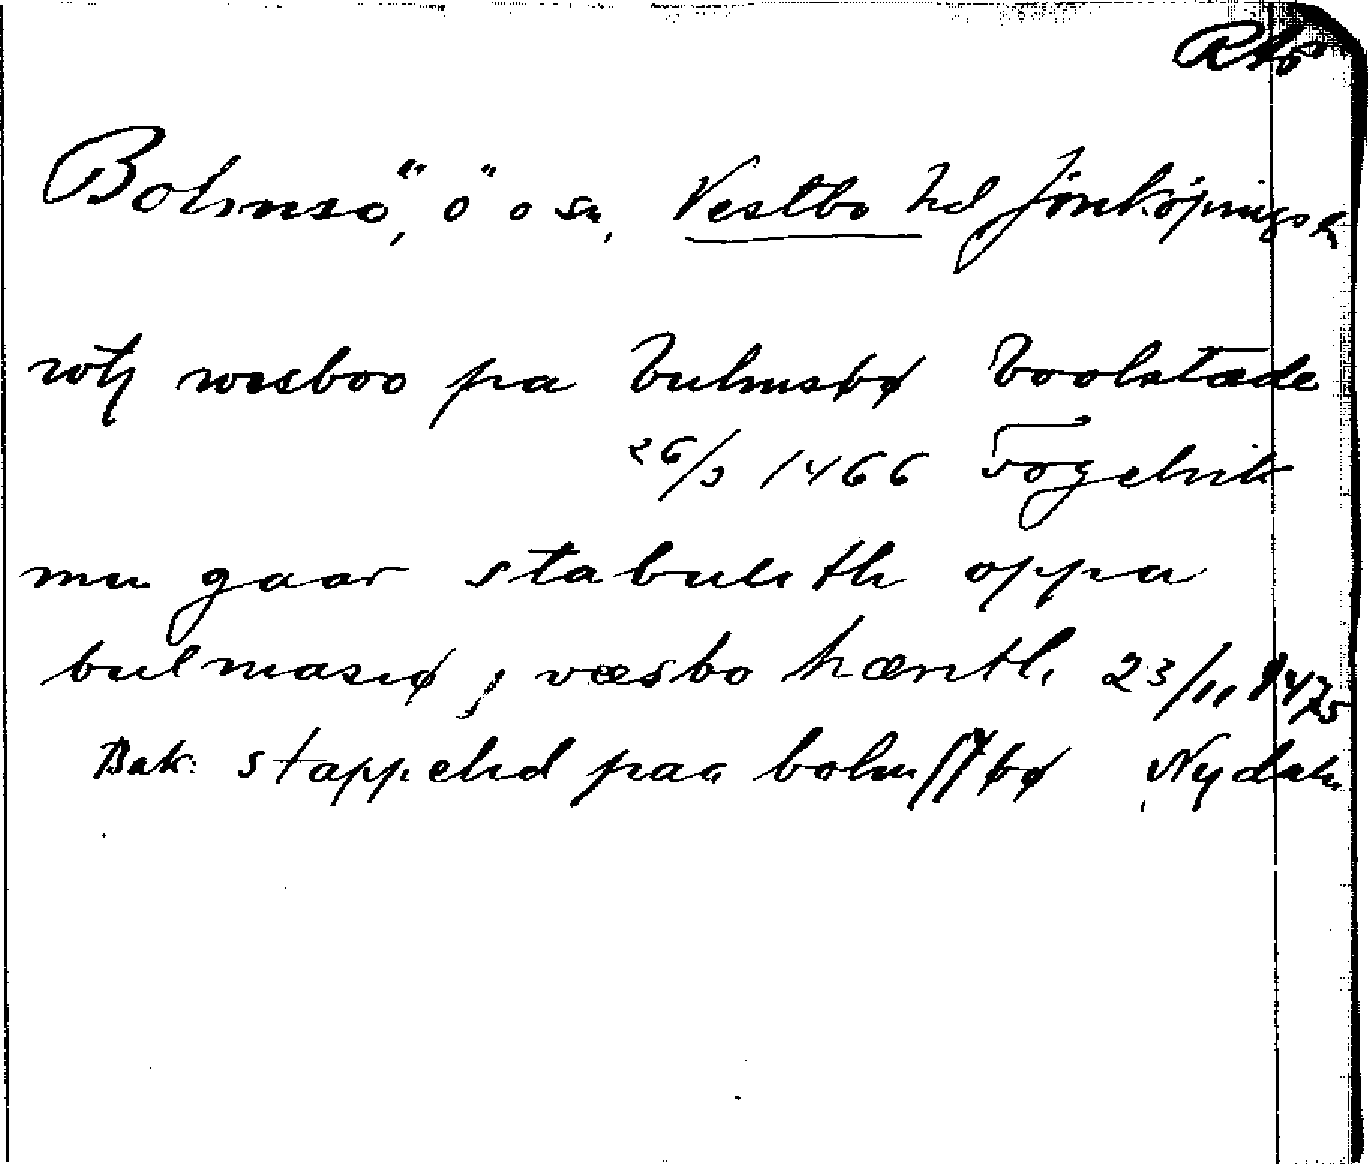 Rap
Bolmsö, ö o sn, Vestbo hd Jönköpings l
wtj wesboo pa bulmsøø boolstæde
26/3 1466 Fogelvik
mu gaar stabulith oppa
bulmasiø j væsbo hærith. 23/11 1475
Bak: stappelid paa bolmssøø Nydala